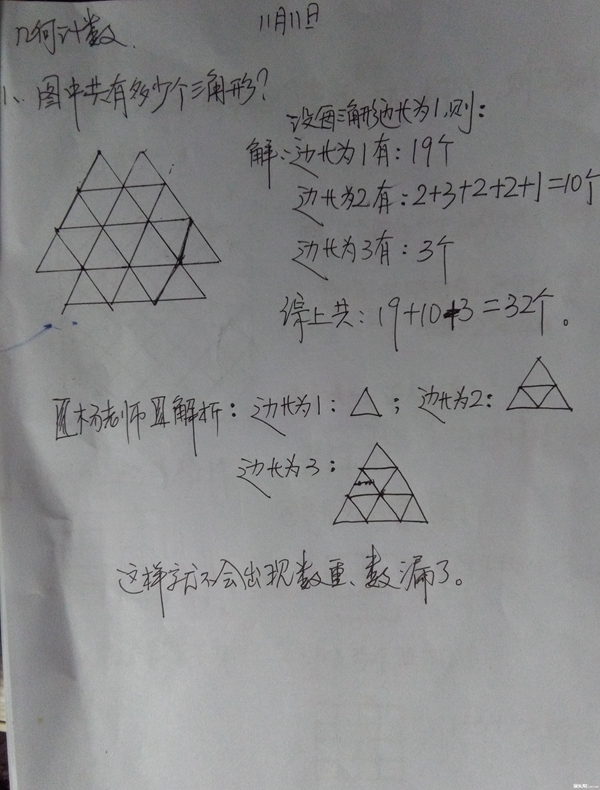 几何计数. 11月11日
1、图中共有多少个三角形?
设每三角形边长为1,则:
解: 边长为1有: 19个
边长为2有: 2+3+2+2+1=10个
边长为3有: 3个
综上共: 19+10+3=32个。
杨老师 解析: 边长为1: ; 边长为2:
边长为3:
这样就不会出现数重、数漏了。